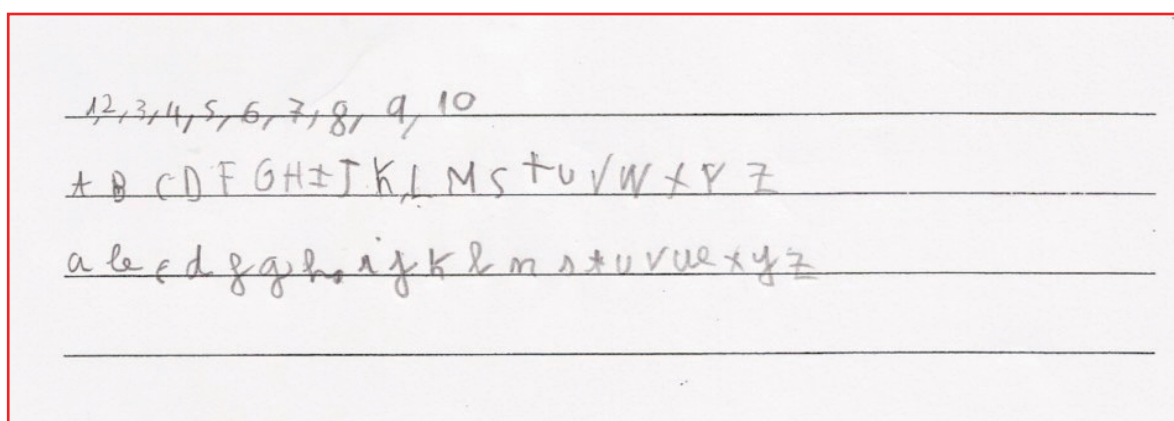 1,2,3,4,5,6,7,8, 9, 10
A B C D F G H I J K L M S T U V W X Y Z
a b c d f g h i j k l m s t u v w x y z